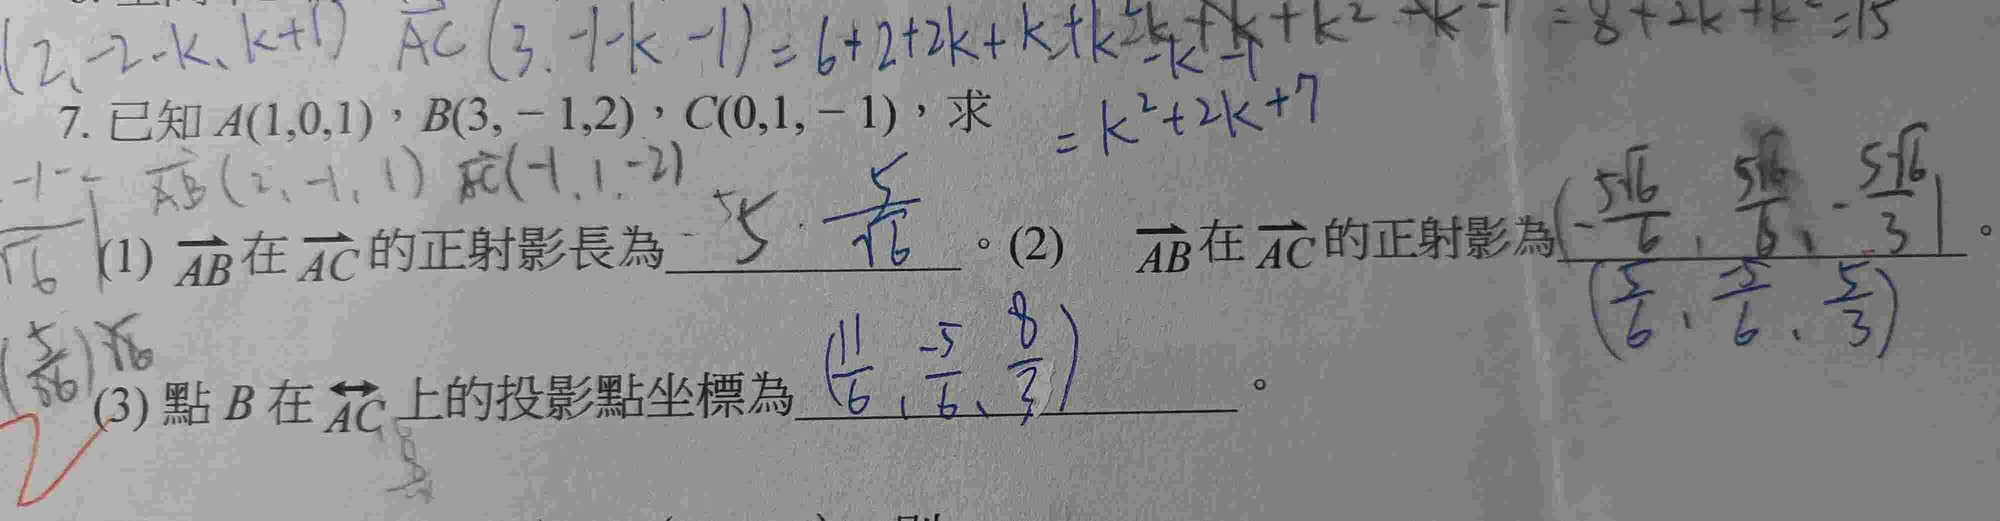 (2、-2-k、k+1) AC (3、-1-k -1) = 6+2+2k+k+k²-k-1 = 8+2k+k² = 15
7. 已知 A(1,0,1),B(3,-1,2),C(0,1,-1),求 = k²+2k+7
AB (2、-1、1) AC (-1、1、-2)
(1) AB 在 AC 的正射影長為 5/√6 。(2) AB 在 AC 的正射影為 (-5√6/6、5√6/6、-5√6/3)。
(5/6、-5/6、5/3)
(3) 點 B 在 AC 上的投影點坐標為 (11/6、-5/6、8/3) 。